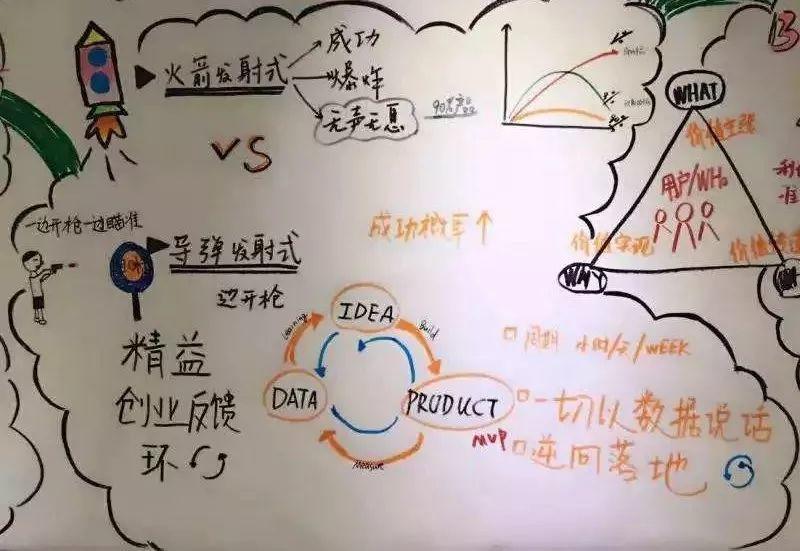 火箭发射式
成功
爆炸
无声无息
90%产品
VS
一边开枪一边瞄准
导弹发射式
边开枪
成功概率↑
精益
创业反馈
环
IDEA
Build
PRODUCT
MVP
Measure
DATA
Learning
周期 小时/天/WEEK
一切以数据说话
逆向落地
WHAT
价值主张
用户/WHO
价值实现
WHY
3